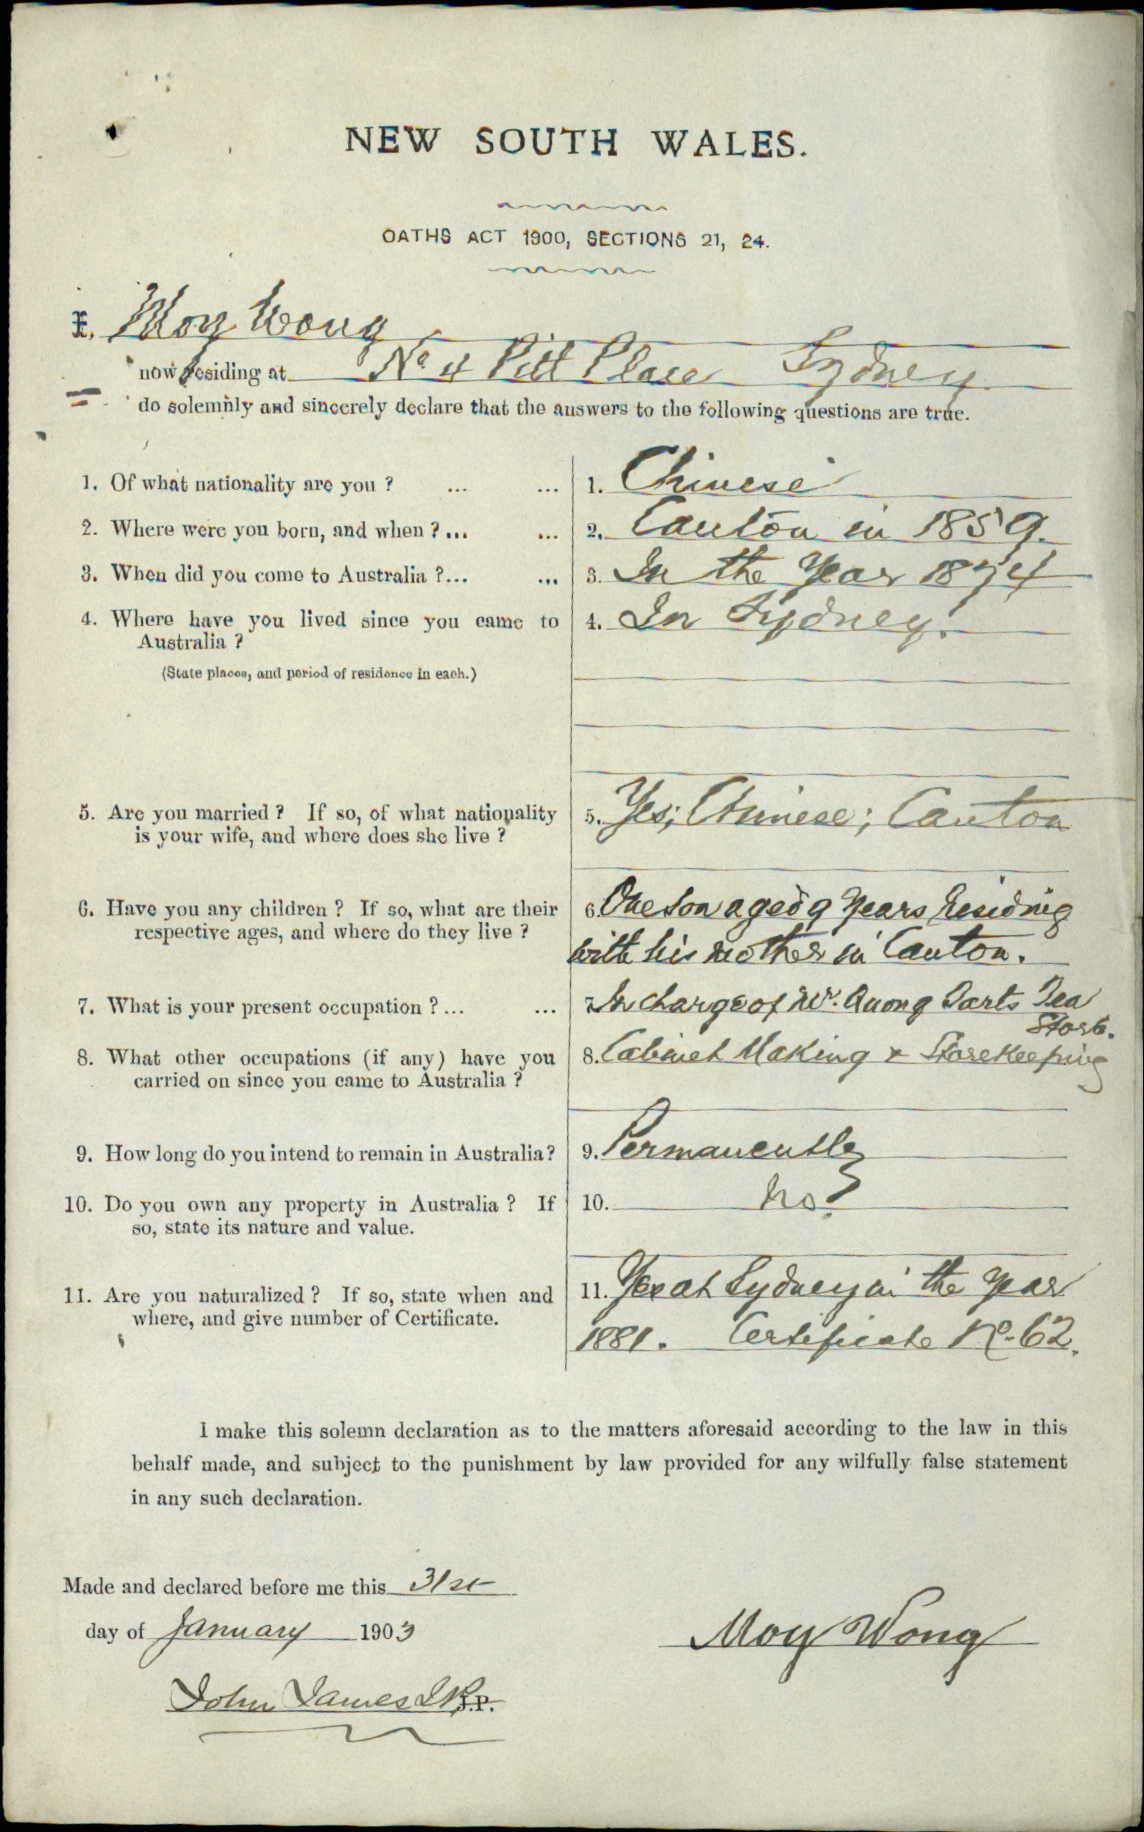 NEW SOUTH WALES.
OATHS ACT 1900, SECTIONS 21, 24.
I, Moy Wong
now residing at No 4 Pitt Place Sydney
do solemnly and sincerely declare that the answers to the following questions are true.
1. Of what nationality are you ? ... ... 1. Chinese
2. Where were you born, and when ? ... ... 2. Canton in 1859.
3. When did you come to Australia ?... ... 3. In the Year 1874
4. Where have you lived since you came to 4. In Sydney.
Australia ?
(State places, and period of residence in each.)
5. Are you married ? If so, of what nationality 5. Yes; Chinese; Canton
is your wife, and where does she live ?
6. Have you any children ? If so, what are their 6. One son aged 9 years residing
respective ages, and where do they live ? with his mother in Canton.
7. What is your present occupation ? ... ... 7. In charge of Mr. Quong Tarts Tea
Store.
8. What other occupations (if any) have you 8. Cabinet Making & Storekeeping
carried on since you came to Australia ?
9. How long do you intend to remain in Australia? 9. Permanently
10. Do you own any property in Australia ? If 10. No.
so, state its nature and value.
11. Are you naturalized ? If so, state when and 11. Yes at Sydney in the year
where, and give number of Certificate. 1881. Certificate No. 62.
I make this solemn declaration as to the matters aforesaid according to the law in this
behalf made, and subject to the punishment by law provided for any wilfully false statement
in any such declaration.
Made and declared before me this 31st
day of January 1903 Moy Wong
John James J.P. J.P.